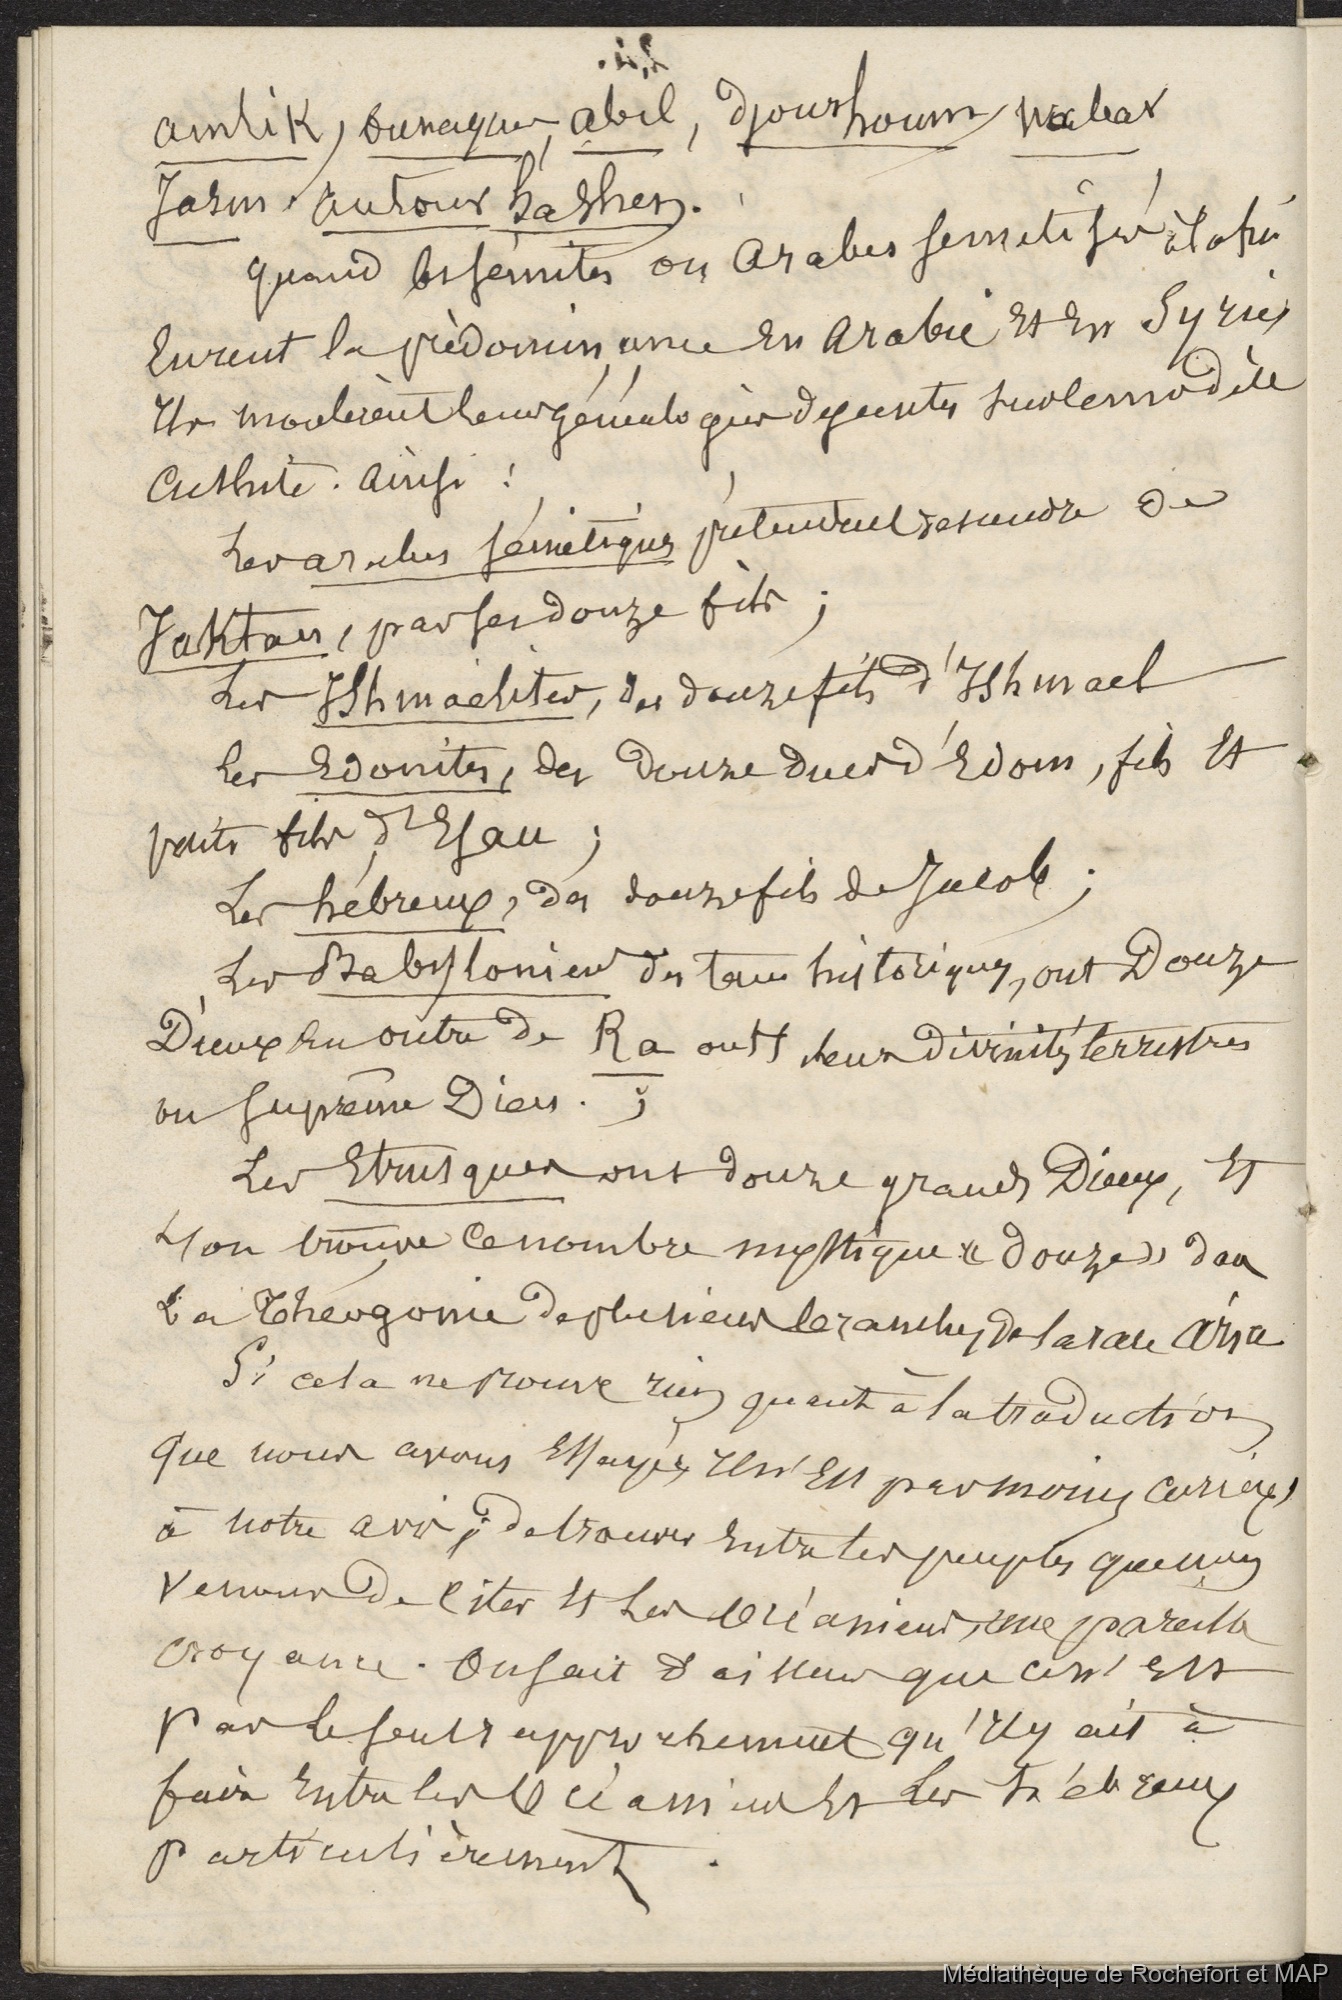 amlik, ounaques, abil, djourhoum, wabar
Jasm. autour hashem.
quand les sémites ou Arabes semetisés à la fin
Eurent la prèdominance En Arabie Et En Syrie,
Ils modèlerent leurs généalogies depeentes sur le modèle
Cushite. Ainsi :
Les arabes sémétiques prétendent descendre de
Jaktan, par ses douze fils ;
Les Ishmaëlites, des douze fils d'Ishmael
Les Edomites, des douze ducs d'Edom, fils Et
petits fils d'Esau ;
Les hébreux, des douze fils de Jacob ;
Les Babyloniens des tems historiques, ont Douze
Dieux En outre de Ra ou leur divinités terrestres
ou suprême Dieu. ;
Les Etrusques ont douze grands Dieux, Et
l'on trouve ce nombre mystique « douze » dans
La Théogonie de plusieurs branches de la race Arya
Si cela ne prouve rien quant à la traduction
que nous avons Essayée, Il n'Est pas moins curieux,
à notre avis, de trouver Entre les peuples que nous
Venons de Citer Et Les Océaniens, une pareille
croyance. On sait d'ailleurs que ce n'Est
pas le seul rapprochement qu'Il y ait à
faire Entre les Océaniens Et Les hébreux
particulièrement.
Médiathèque de Rochefort et MAP